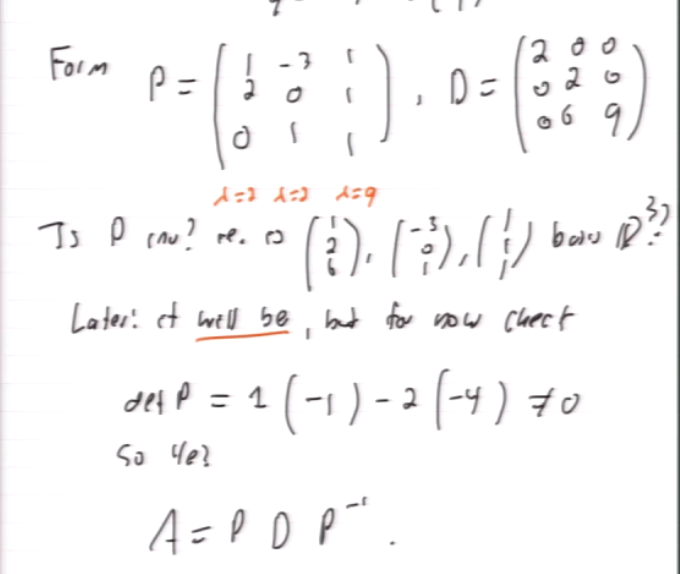 Form P = ( 1 -3 1 2 0 1 0 1 1 ), D = ( 2 0 0 0 2 0 0 6 9 )
λ=2 λ=2 λ=9
Is P inv? ie. is (1 2 6), (-3 0 1), (1 1 1) basis ℝ³?
Later: it will be, but for now check
det P = 1(-1) - 2(-4) ≠ 0
So yes
A = P D P⁻¹.